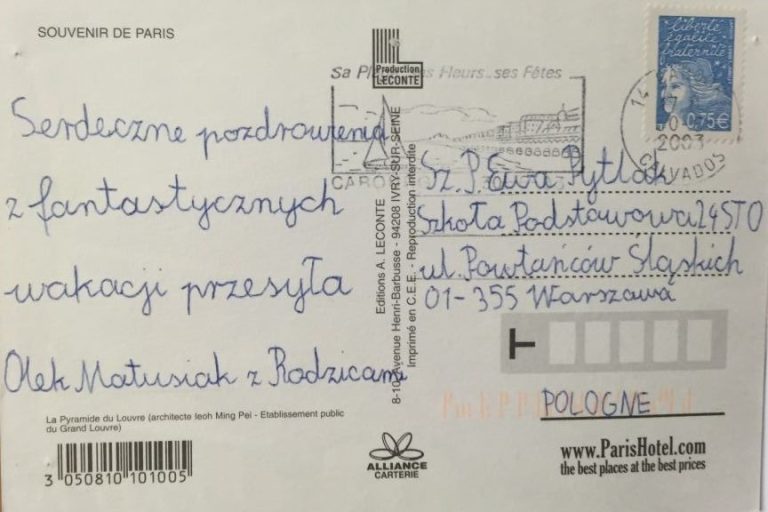 SOUVENIR DE PARIS
Production
LECONTE
Serdeczne pozdrowienia
z fantastycznych
wakacji przesyła
Olek Matusiak z Rodzicami
La Pyramide du Louvre (architecte Ieoh Ming Pei - Etablissement public
du Grand Louvre)
3 050810 101005
Editions A. LECONTE
8-10 Avenue Henri-Barbusse - 94208 IVRY-SUR-SEINE
Imprimé en C.E.E. - Reproduction interdite
ALLIANCE
CARTERIE
Sa Fleurs.. ses Fêtes
liberté
égalité
fraternité
0,75€
14
2003
CALVADOS
Sz. P. Ewa Pytlak
Szkoła Podstawowa 24 STO
ul. Powstańców Śląskich
01-355 Warszawa
POLOGNE
www.ParisHotel.com
the best places at the best prices